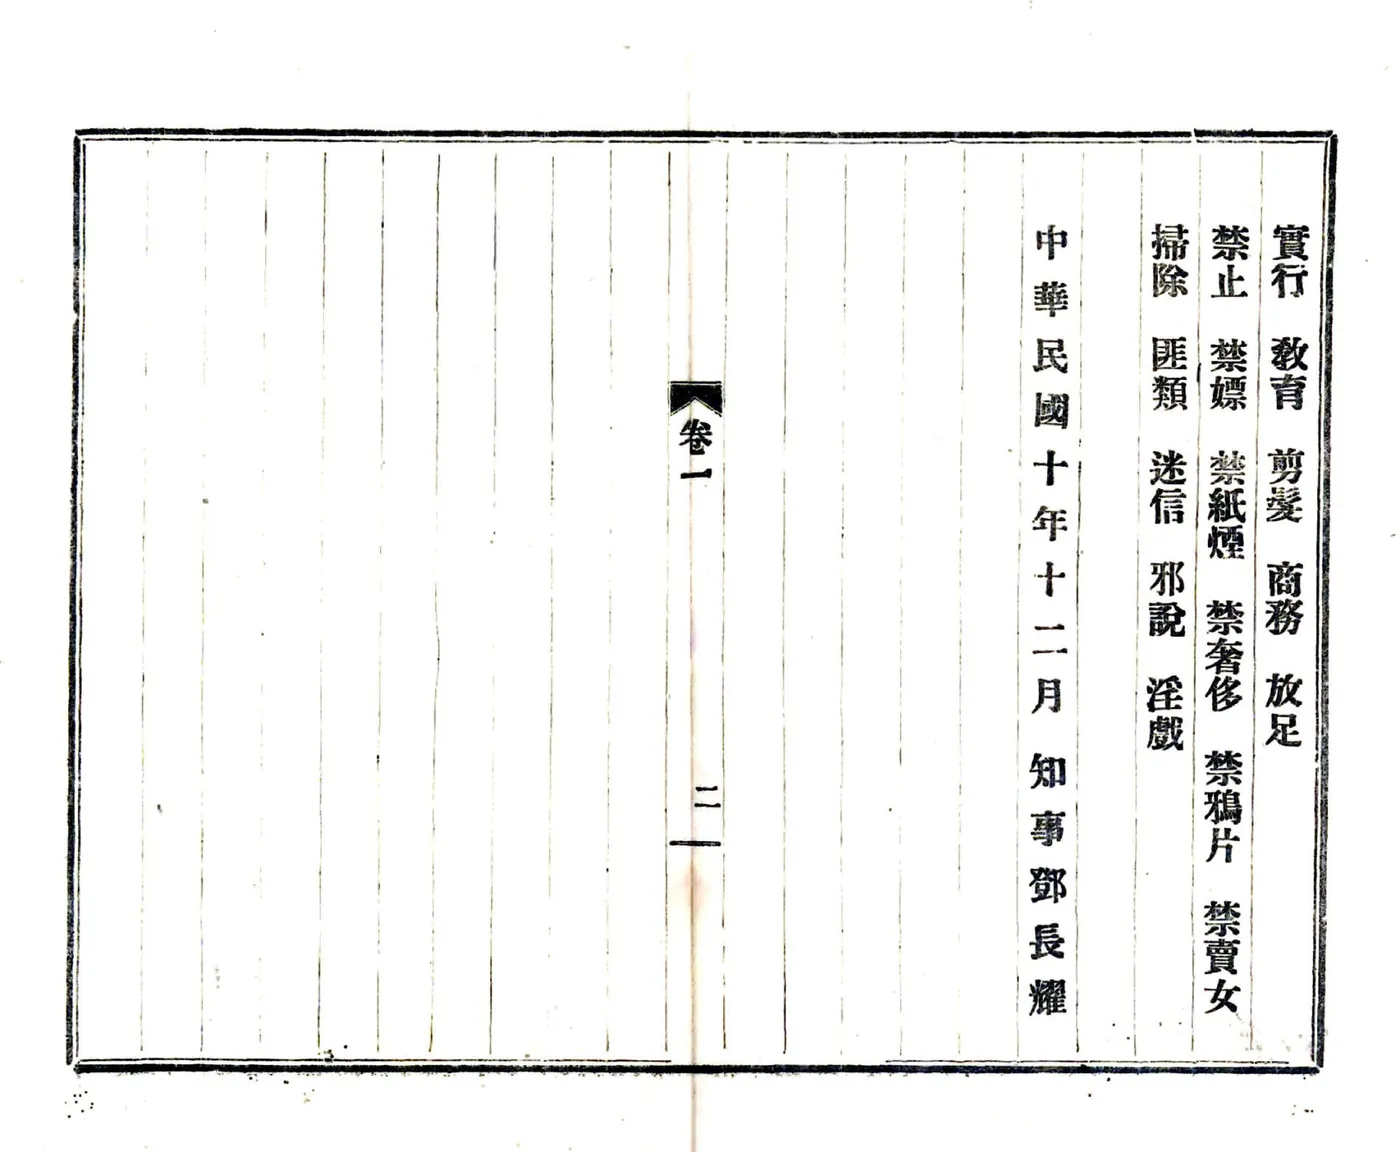 實行　敎育　剪髮　商務　放足
禁止　禁嫖　禁紙煙　禁奢侈　禁鴉片　禁賣女
掃除　匪類　迷信　邪說　淫戲
中華民國十年十二月　知事鄧長耀
卷一
二